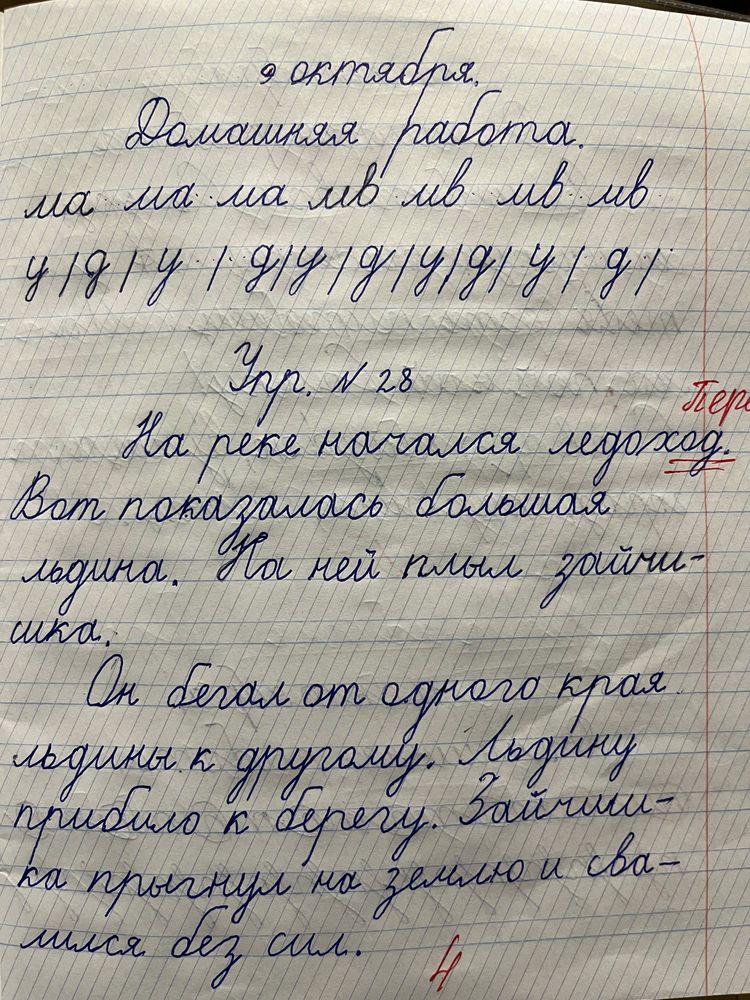 9 октября.
Домашняя работа.
ма ма ма мв мв мв мв
у / д / у / д / у / д / у / д / у / д /
Упр. № 28
На реке начался ледоход.
Вот показалась большая
льдина. На ней плыл зайчи-
шка.
Он бегал от одного края
льдины к другому. Льдину
прибило к берегу. Зайчиш-
ка прыгнул на землю и сва-
лился без сил.
4